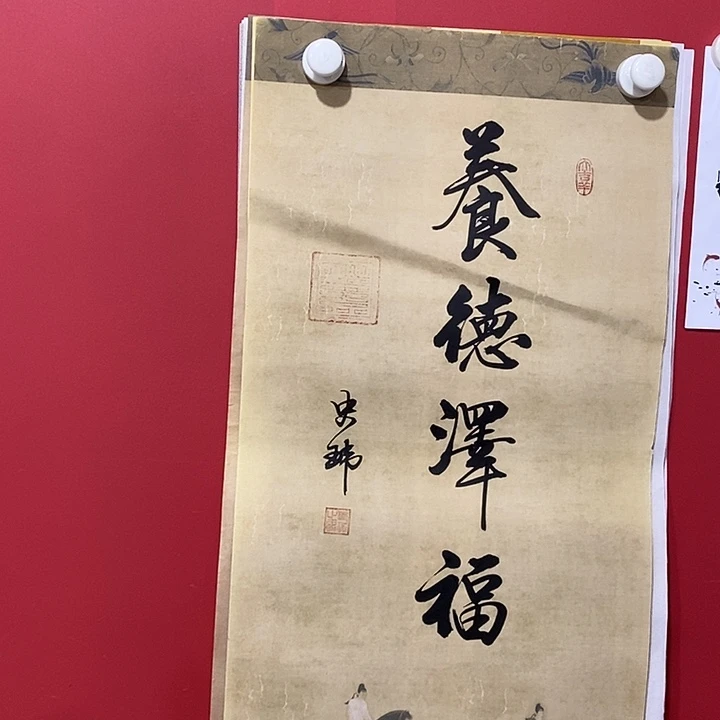 養德澤福
史瑋